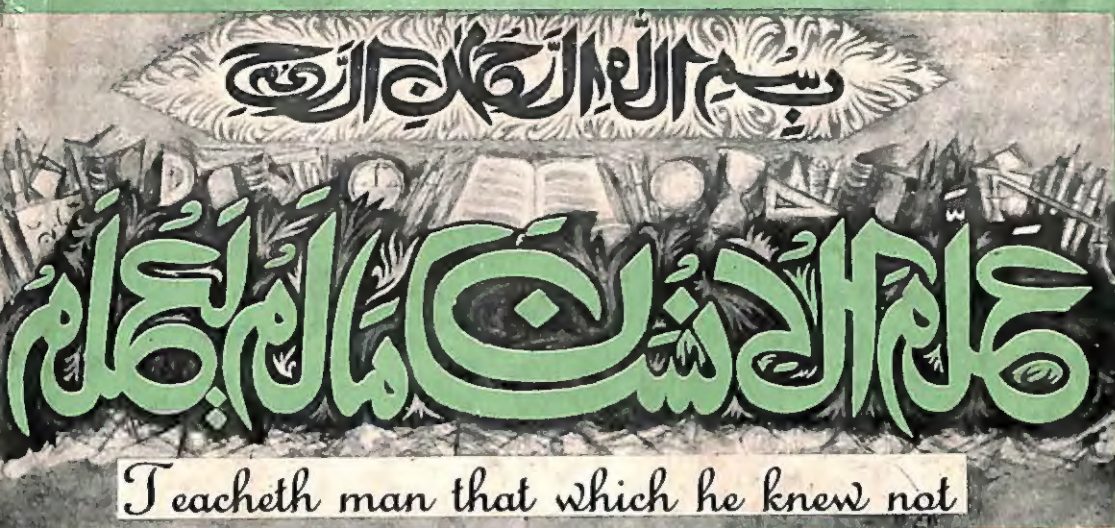 بِسْمِ اللهِ الرَّحْمٰنِ الرَّحِيْمِ
عَلَّمَ الْاِنْسَانَ مَا لَمْ يَعْلَمْ
Teacheth man that which he knew not